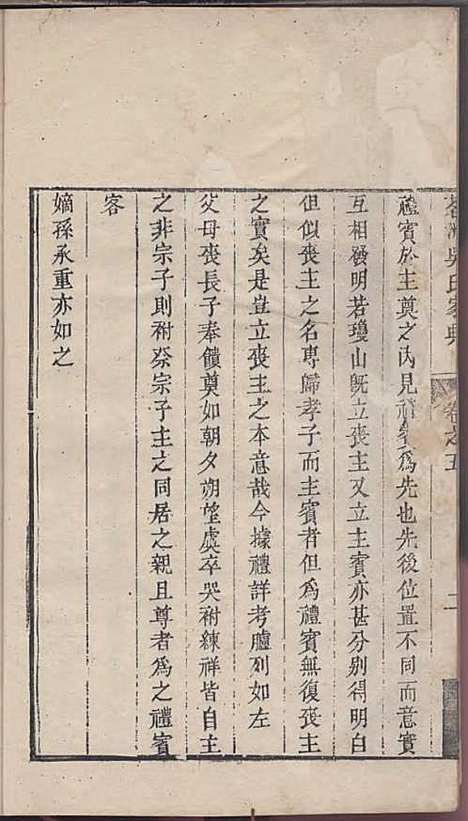 茗洲吳氏家典 卷之五 二
禮賓於主奠之內見禮爲先也先後位置不同而意實
互相發明若瓊山旣立喪主又立主賓亦甚分別得明白
但似喪主之名專歸孝子而主賓者但爲禮賓無復喪主
之實矣是豈立喪主之本意哉今據禮詳考臚列如左
父母喪長子奉饋奠如朝夕朔望虞卒哭祔練祥皆自主
之非宗子則祔祭宗子主之同居之親且尊者爲之禮賓
客
嫡孫承重亦如之